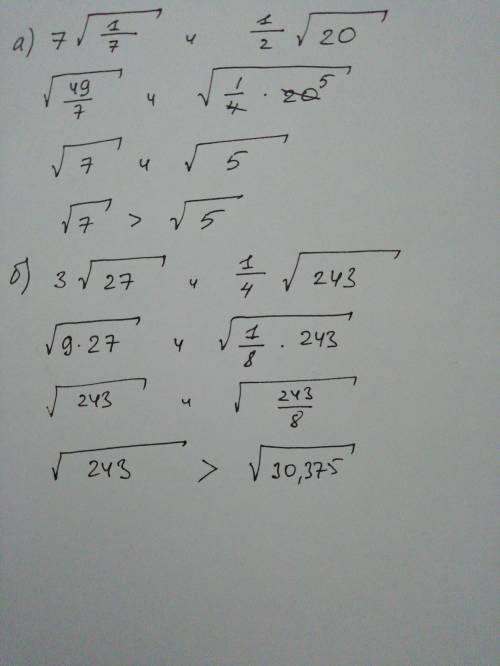 а) 7√(1/7) и 1/2 √20
√(49/7) и √(1/4 · 20⁵)
√7 и √5
√7 > √5
б) 3√27 и 1/4 √243
√(9·27) и √(1/8 · 243)
√243 и √(243/8)
√243 > √30,375